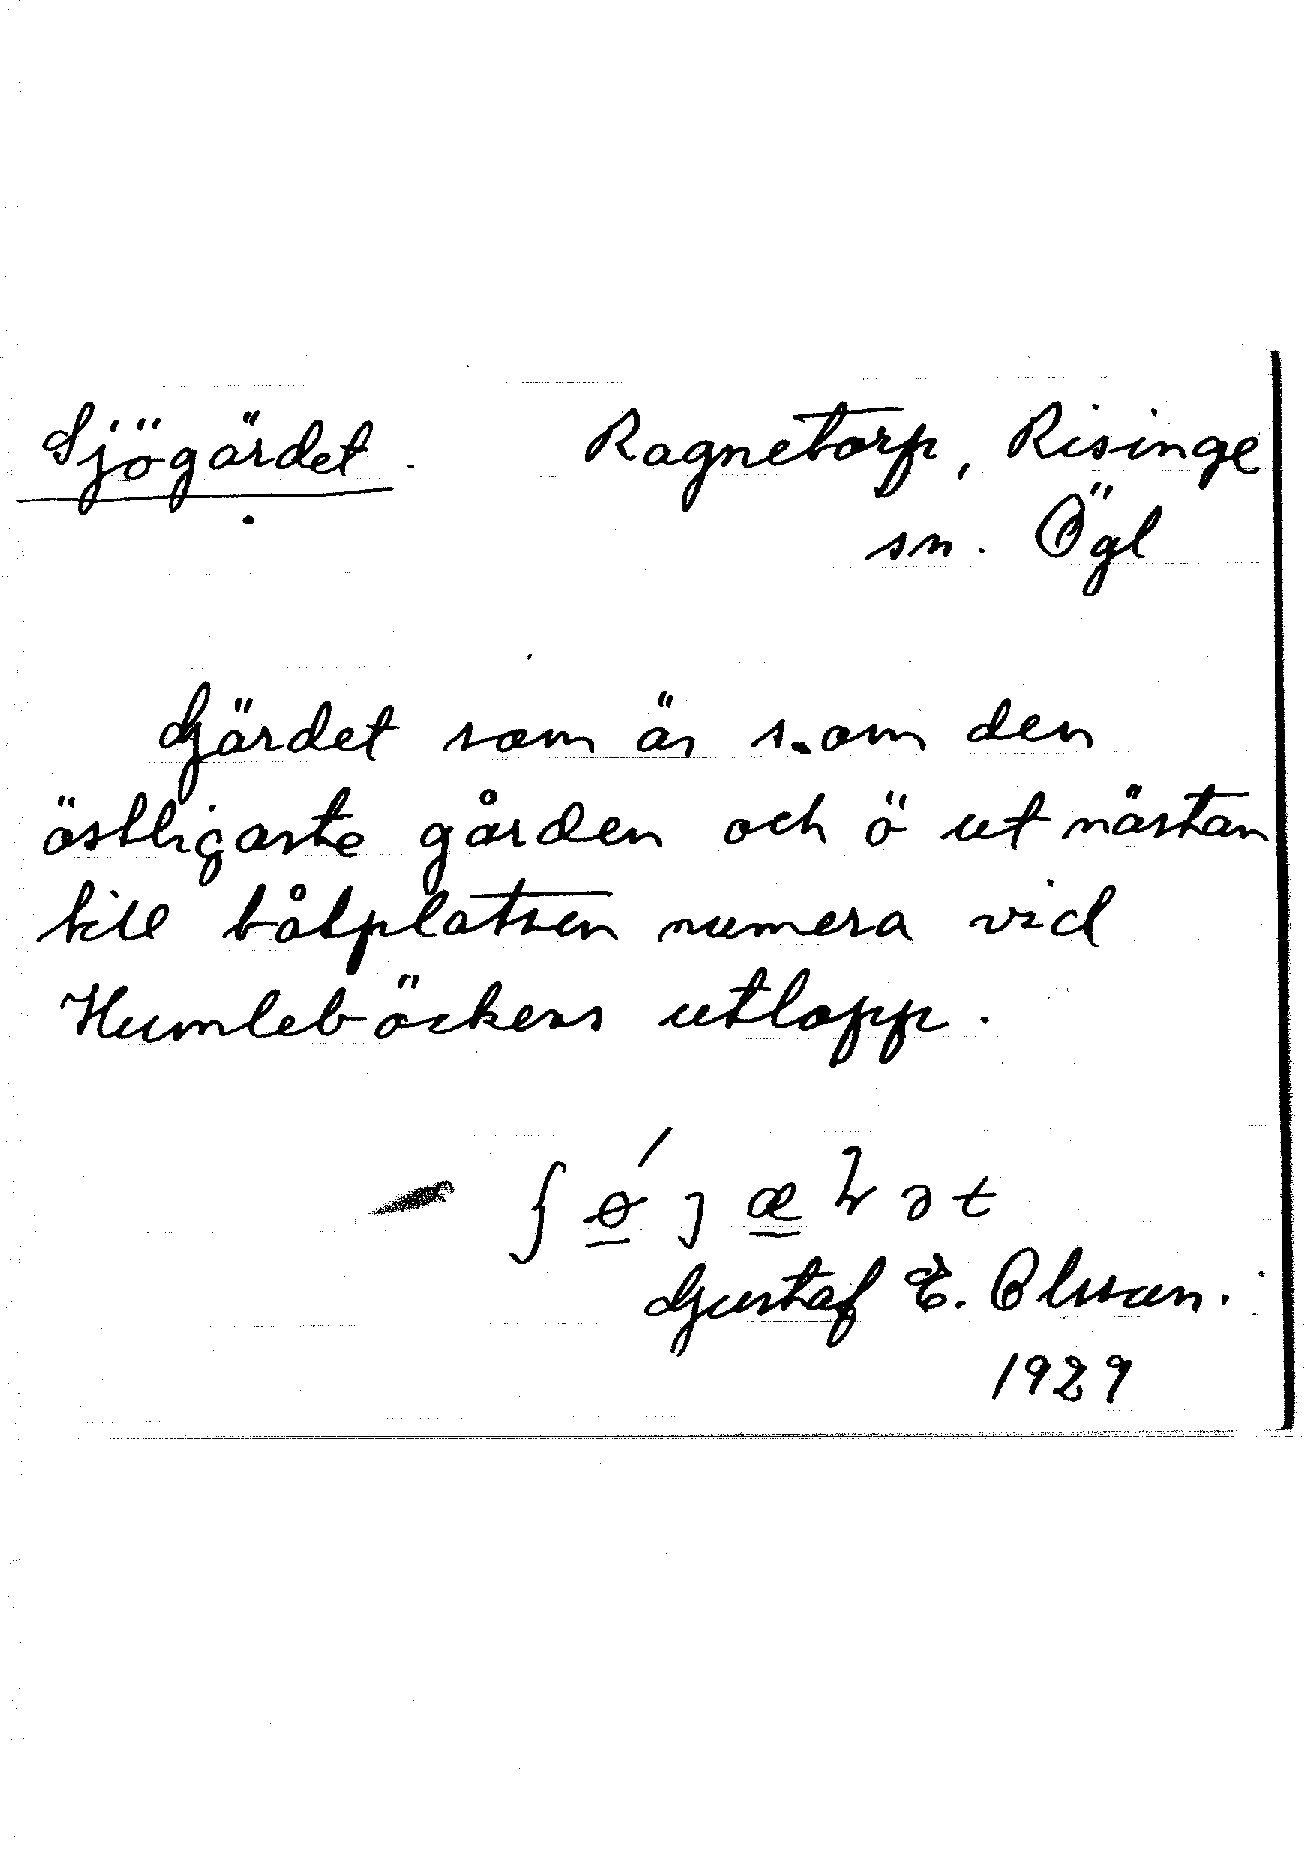 Sjögärdet. Ragnetorp, Risinge
sn. Ögl
Gärdet som är s. om den
östligaste gården och ö ut nästan
till båtplatsen numera vid
Humlebäckens utlopp.
Gustaf E. Olsson.
1929